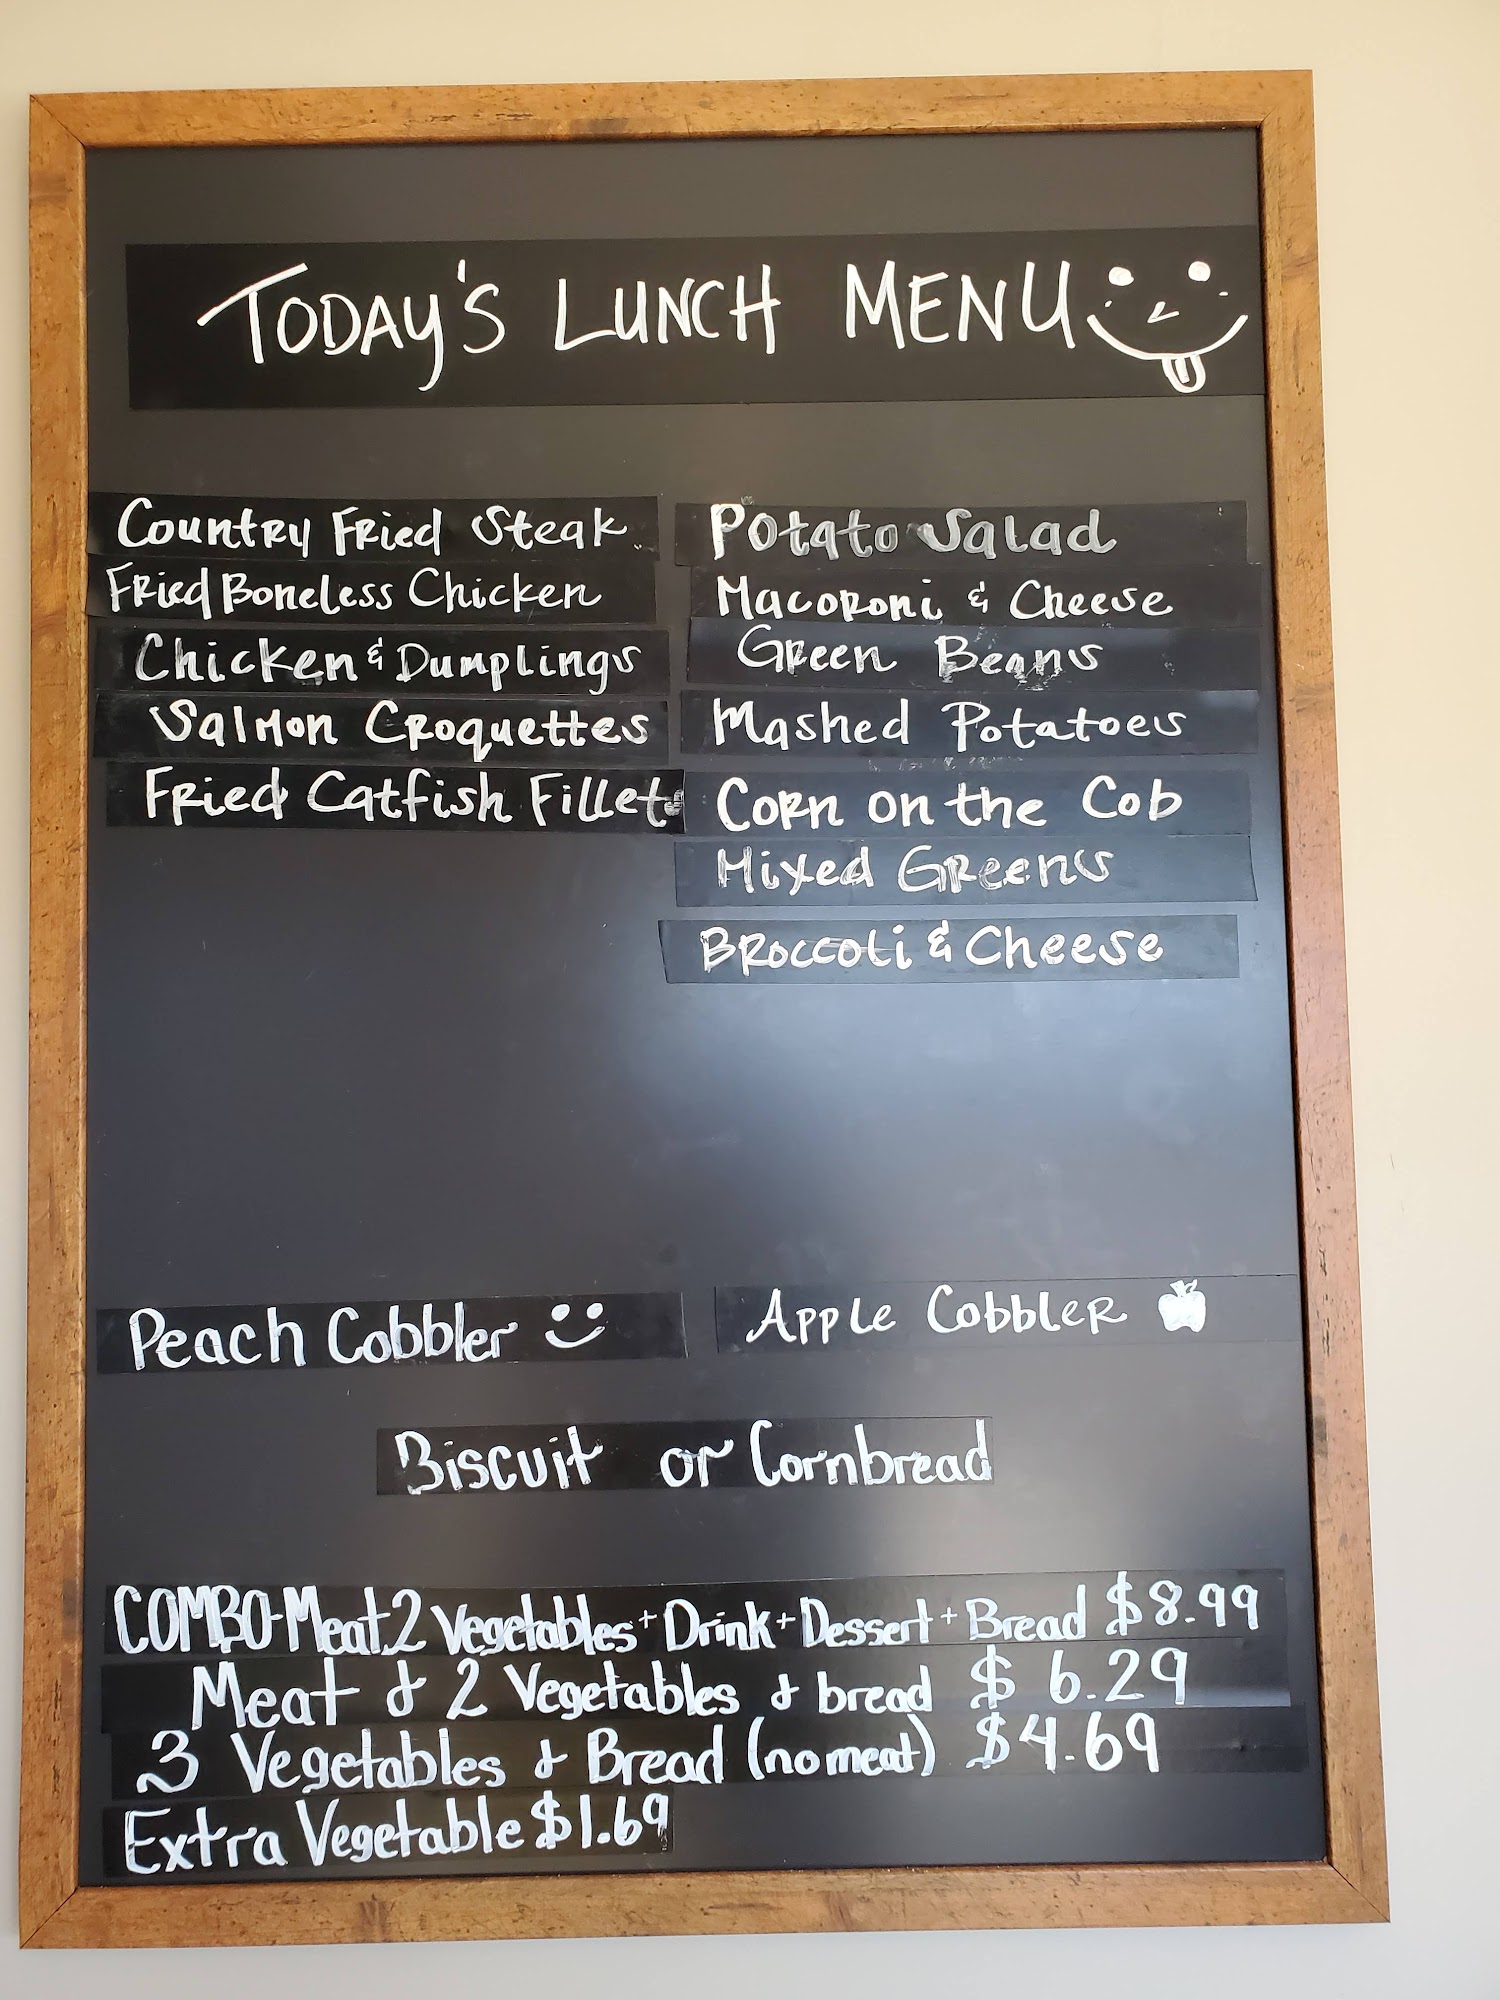 TODAY'S LUNCH MENU
Country Fried Steak
Fried Boneless Chicken
Chicken & Dumplings
Salmon Croquettes
Fried Catfish Fillet
Potato Salad
Macoroni & Cheese
Green Beans
Mashed Potatoes
Corn on the Cob
Mixed Greens
Broccoli & Cheese
Peach Cobbler
Apple Cobbler
Biscuit or Cornbread
COMBO-Meat,2 Vegetables+Drink+Dessert+Bread $8.99
Meat & 2 Vegetables & bread $6.29
3 Vegetables & Bread (no meat) $4.69
Extra Vegetable $1.69